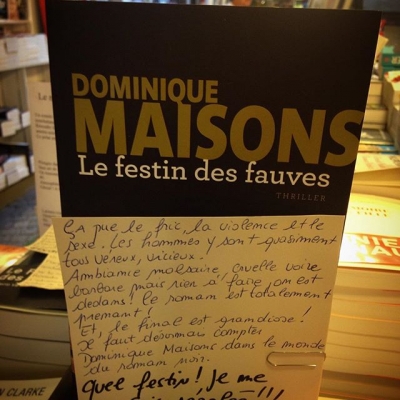 DOMINIQUE
MAISONS
Le festin des fauves
THRILLER
ÇA pue le fric, la violence et le
sexe. Les hommes y sont quasiment
tous véreux, vicieux.
Ambiance malsaine, cruelle voire
barbare mais rien à faire, on est
dedans ! Le roman est totalement
prenant !
Et, le final est grandiose !
Il faut désormais compter
Dominique Maisons dans le monde
du roman noir.
Quel festin ! Je me
CLARKE